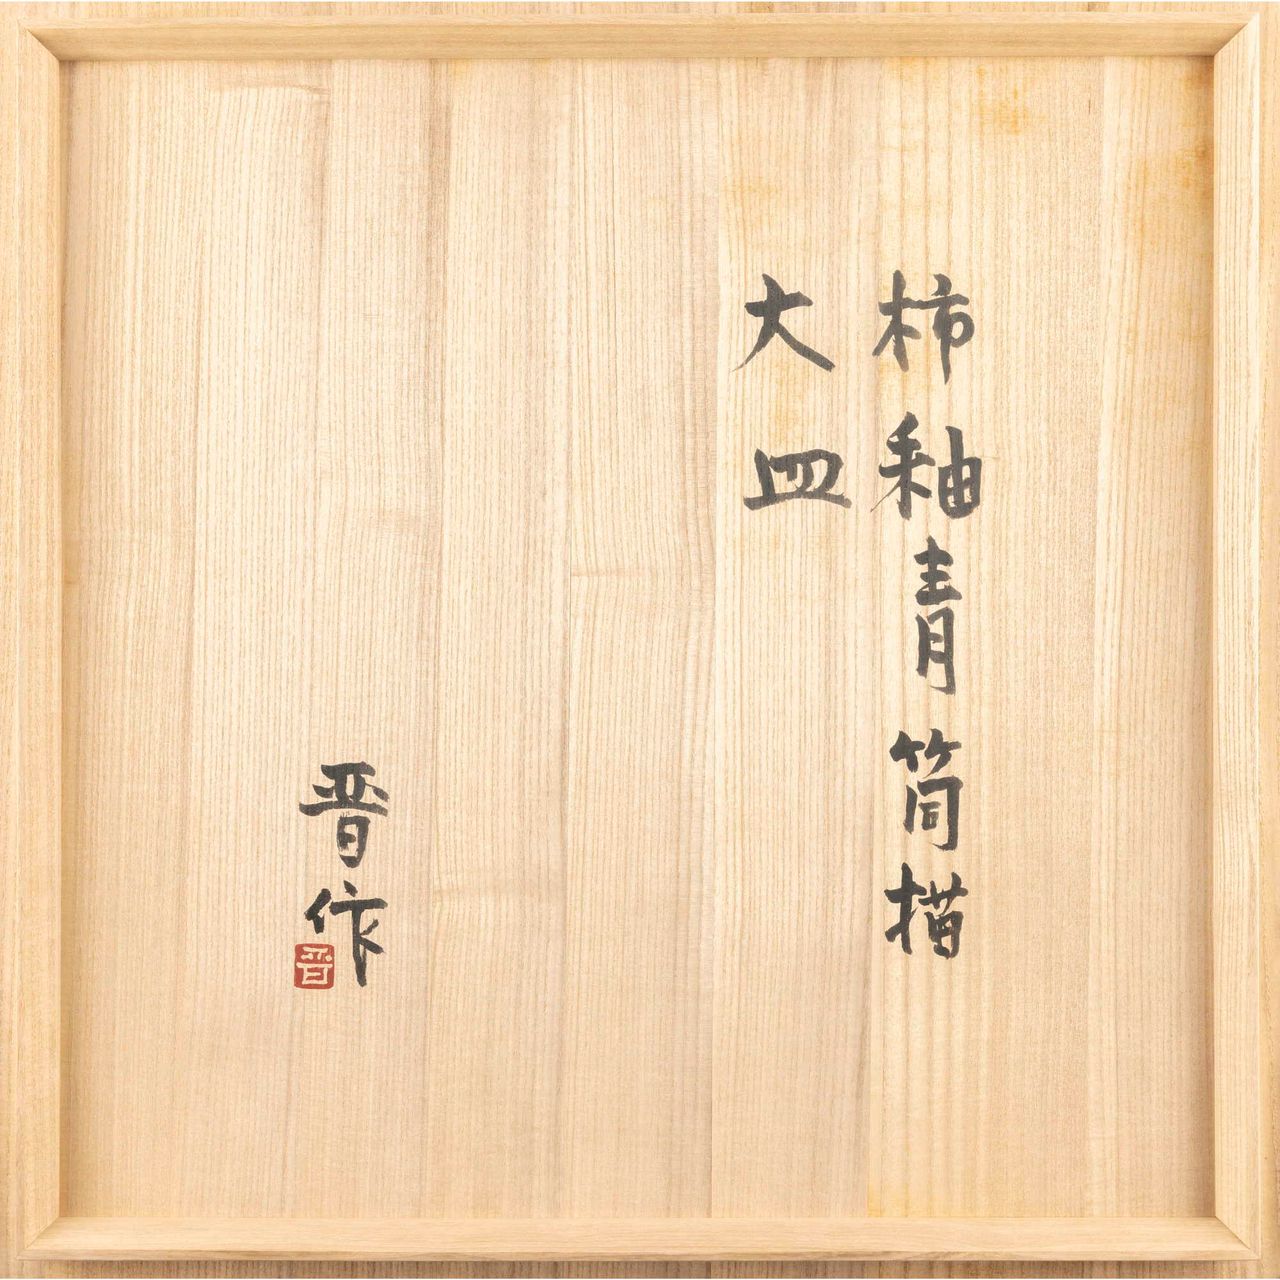 柿釉青筒描
大皿
晋作
晋